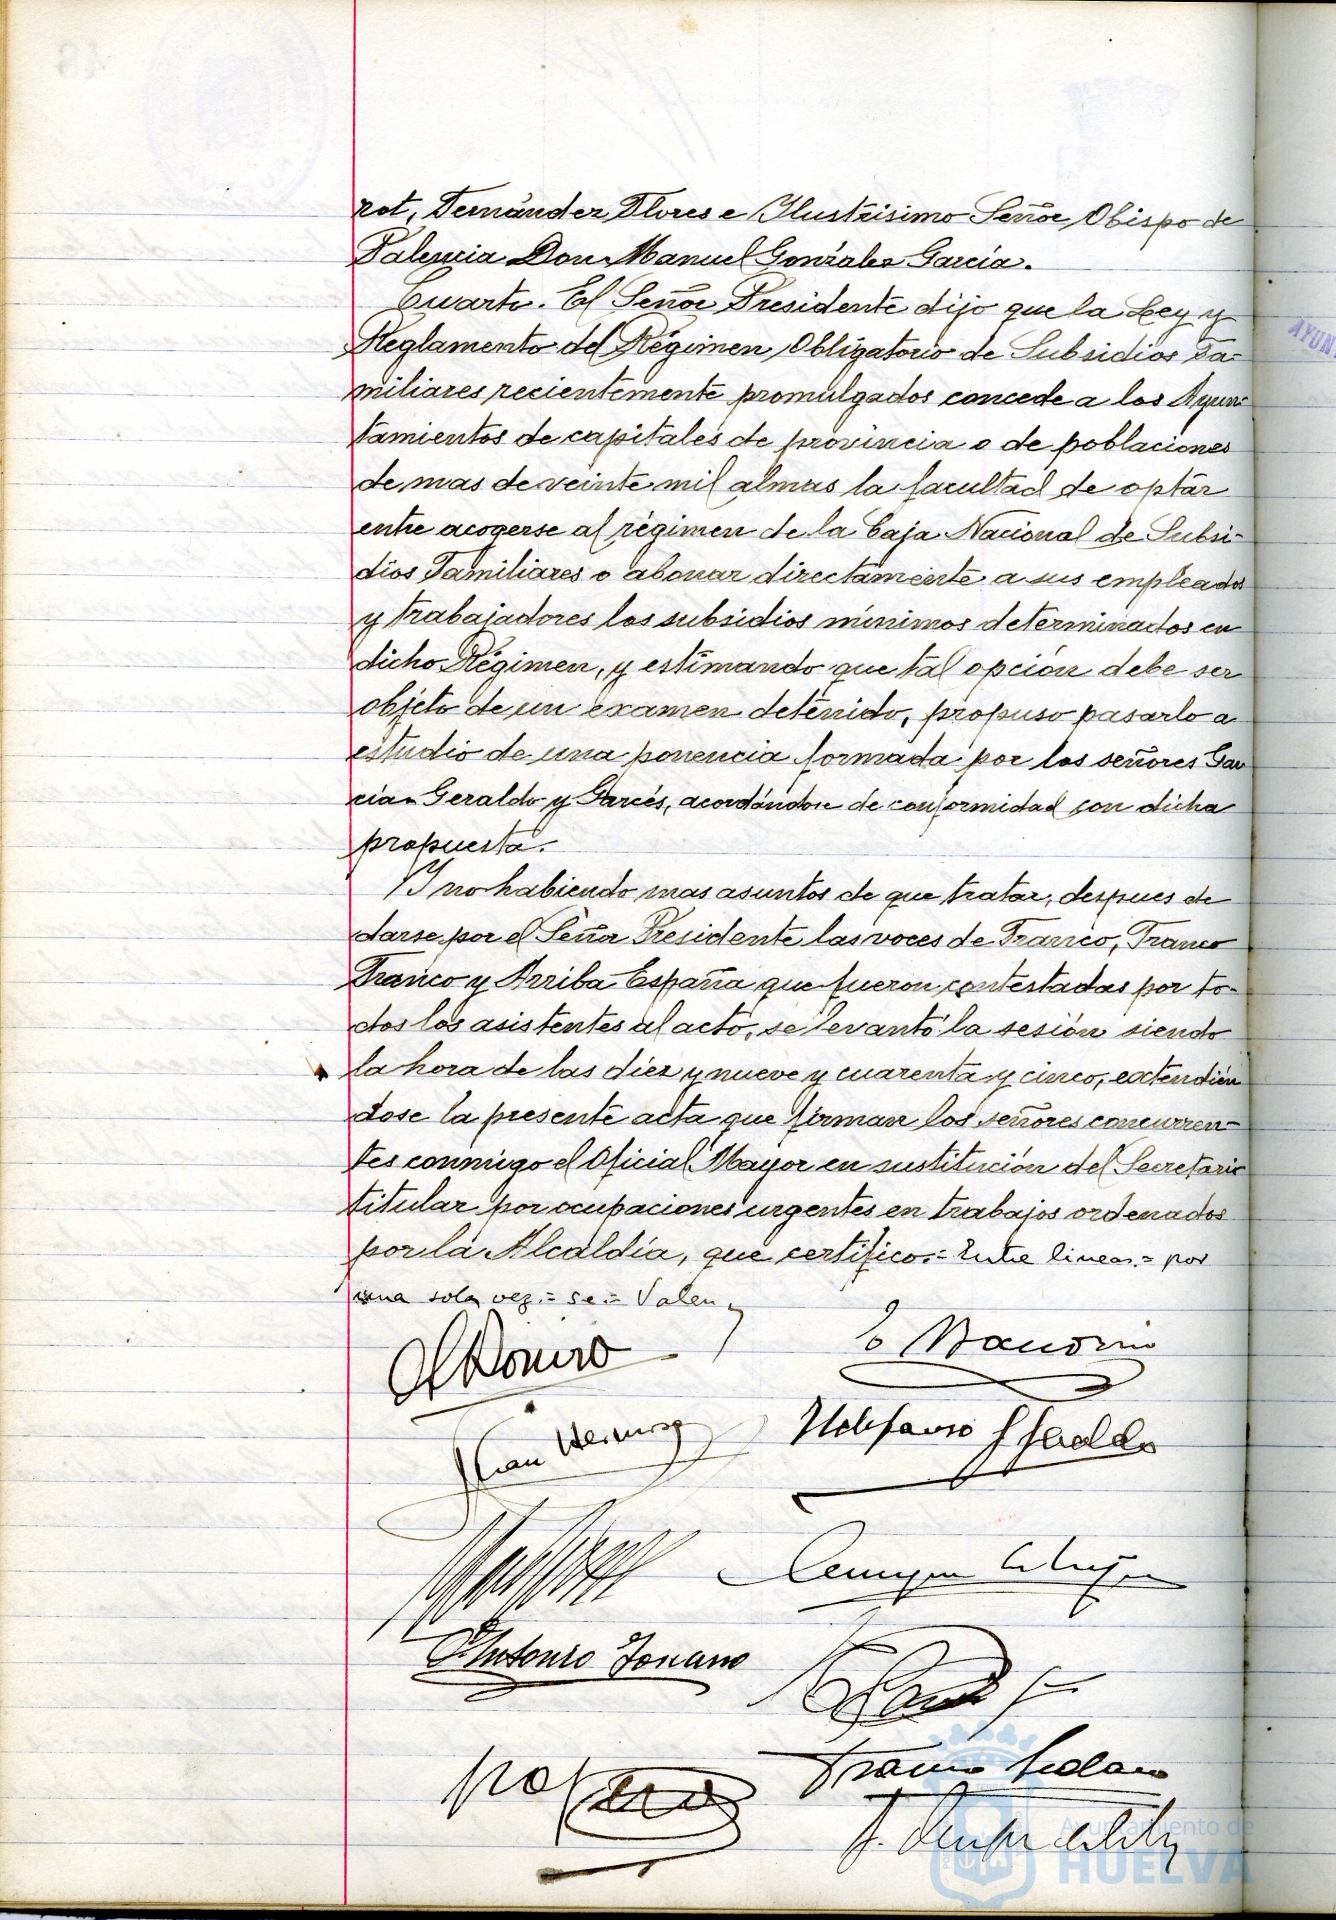 rot, Fernández Flores e Ilustrisimo Señor Obispo de
Palencia Don Manuel González García.
Cuarto. El Señor Presidente dijo que la Ley y
Reglamento del Régimen Obligatorio de Subsidios Fa-
miliares recientemente promulgados concede a los Ayun-
tamientos de capitales de provincia o de poblaciones
de mas de veinte mil almas la facultad de optar
entre acogerse al régimen de la Caja Nacional de Subsi-
dios Familiares o abonar directamente a sus empleados
y trabajadores los subsidios mínimos determinados en
dicho Régimen, y estimando que tal opción debe ser
objeto de un examen detenido, propuso pasarlo a
estudio de una ponencia formada por los señores Gar
cia Geraldo y Garcés, acordándose de conformidad con dicha
propuesta.
Y no habiendo mas asuntos de que tratar, despues de
darse por el Señor Presidente las voces de Franco, Franco
Franco y Arriba España que fueron contestadas por to-
dos los asistentes al acto, se levantó la sesión siendo
la hora de las diez y nueve y cuarenta y cinco, extendién
dose la presente acta que firman los señores concurren-
tes conmigo el Oficial Mayor en sustitución del Secretario
titular por ocupaciones urgentes en trabajos ordenados
por la Alcaldía, que certifico.= Entre lineas.= por
una sola vez.= se.= Valen
Ildefonso Geraldo
Antonio
Ayuntamiento de
HUELVA